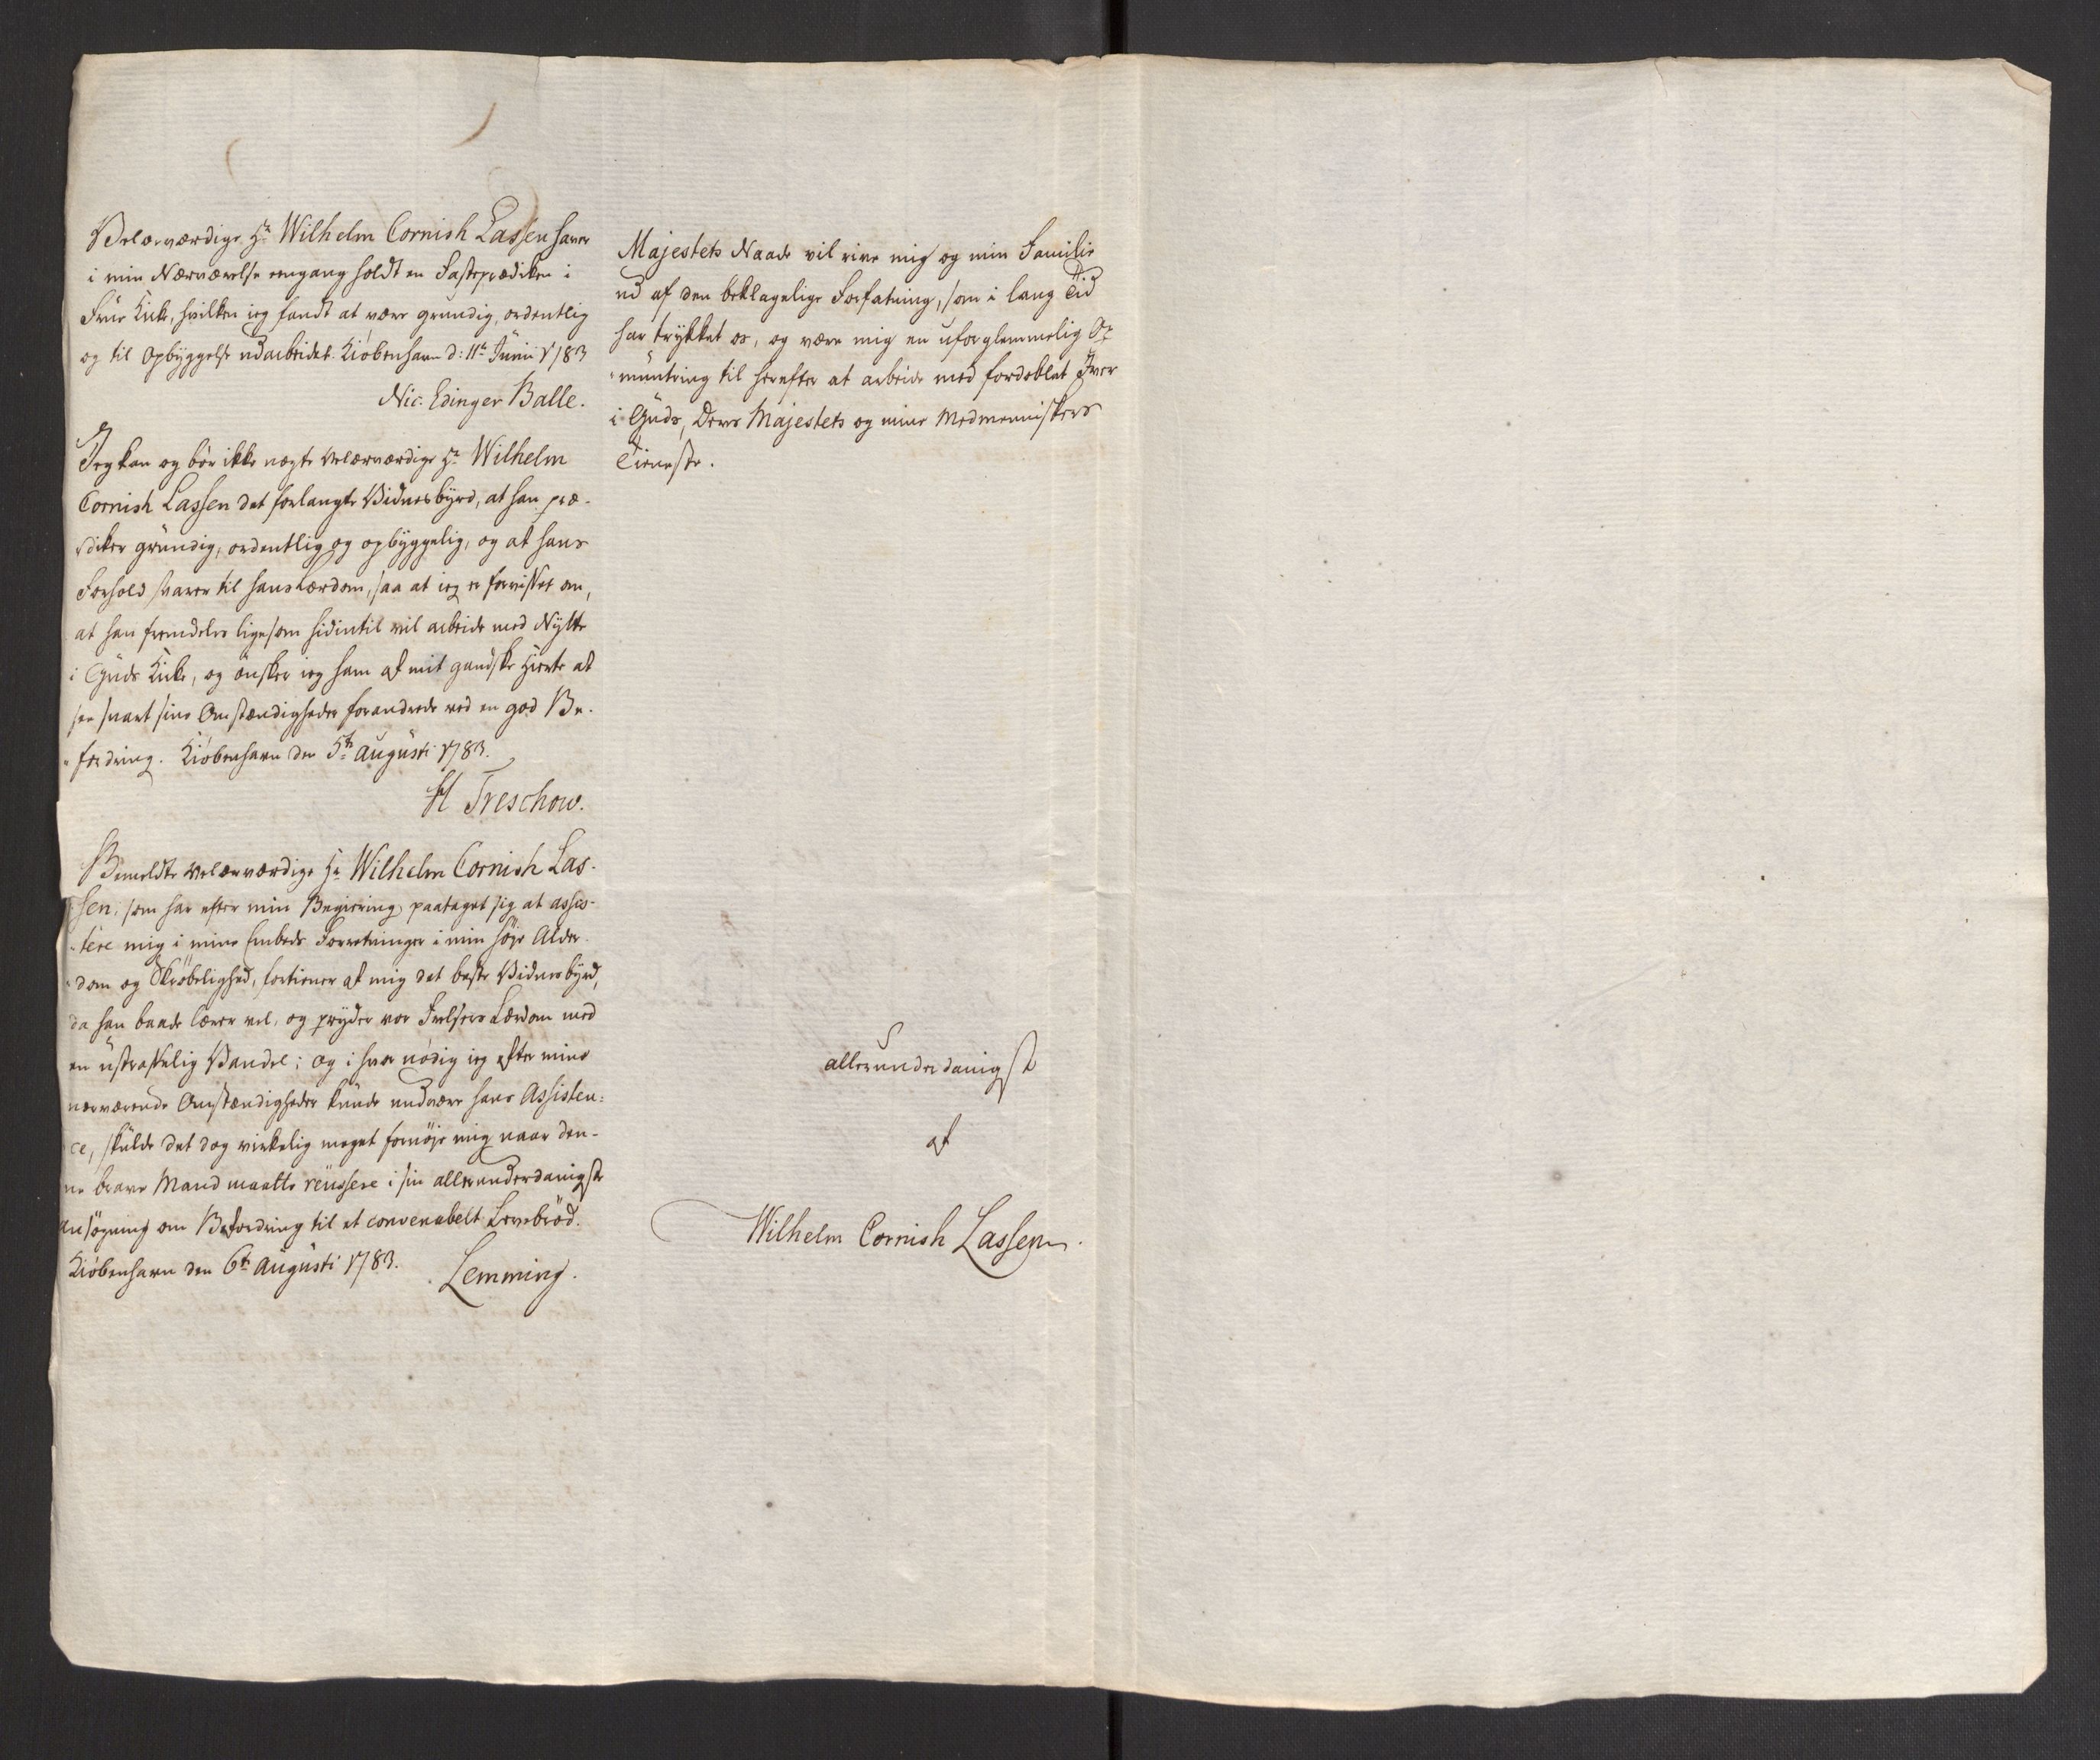 Velærværdige Hr Wilhelm Cornish Lassen haver
i min Nærværelse eengang holdt en Fasteprædiken i
Frue Kirke, hvilken ieg fandt at være grundig, ordentlig
og til Opbyggelse udarbeidet. Kiøbenhavn d: 11te Junii 1783
Nic. Edinger Balle.
Jeg kan og bør ikke nægte Velærværdige Hr Wilhelm
Cornish Lassen det forlangte Vidnesbyrd, at han præ-
diker grundig, ordentlig og opbyggelig, og at hans
Forhold svarer til hans Lærdom, saa at ieg er forvisset om,
at han fremdeles ligesom hidindtil vil arbeide med Nytte
i Guds Kirke, og ønsker ieg ham af mit gandske Hierte at
see snart sine Omstændigheder forandrede ved en god Be-
"fordring. Kiøbenhavn den 5te Augusti 1783.
H Treschow.
Bemeldte Velærværdige Hr Wilhelm Cornish Las-
sen, som har efter min Begiering paataget sig at assis-
"tere mig i mine Embeds Forretninger i min høje Alder-
"dom og Skrøbelighed, fortiener af mig det beste Vidnesbyrd,
da han baade lærer vel, og pryder vor Frelsers Lærdom med
en ustraffelig Vandel; og i hvor nødig ieg efter mine
nærværende Omstændigheder kunde undvære hans Assisten-
ce, skulde det dog virkelig meget fornøje mig naar den-
ne brave Mand maatte reussere i sin allerunderdanigste
Ansøgning om Befordring til et convenabelt Levebrød.
Kiøbenhavn den 6te Augusti 1783. Lemming.
Majestets Naade vil rive mig og min Familie
ud af den beklagelige Forfatning, som i lang Tid
har trykket os, og være mig en uforglemmelig Op
"muntring til herefter at arbeide med fordoblet Iver
i Guds, Deres Majestets og mine Medmenniskers
Tieneste.
allerunderdanigst
af
Wilhelm Cornish Lassen.